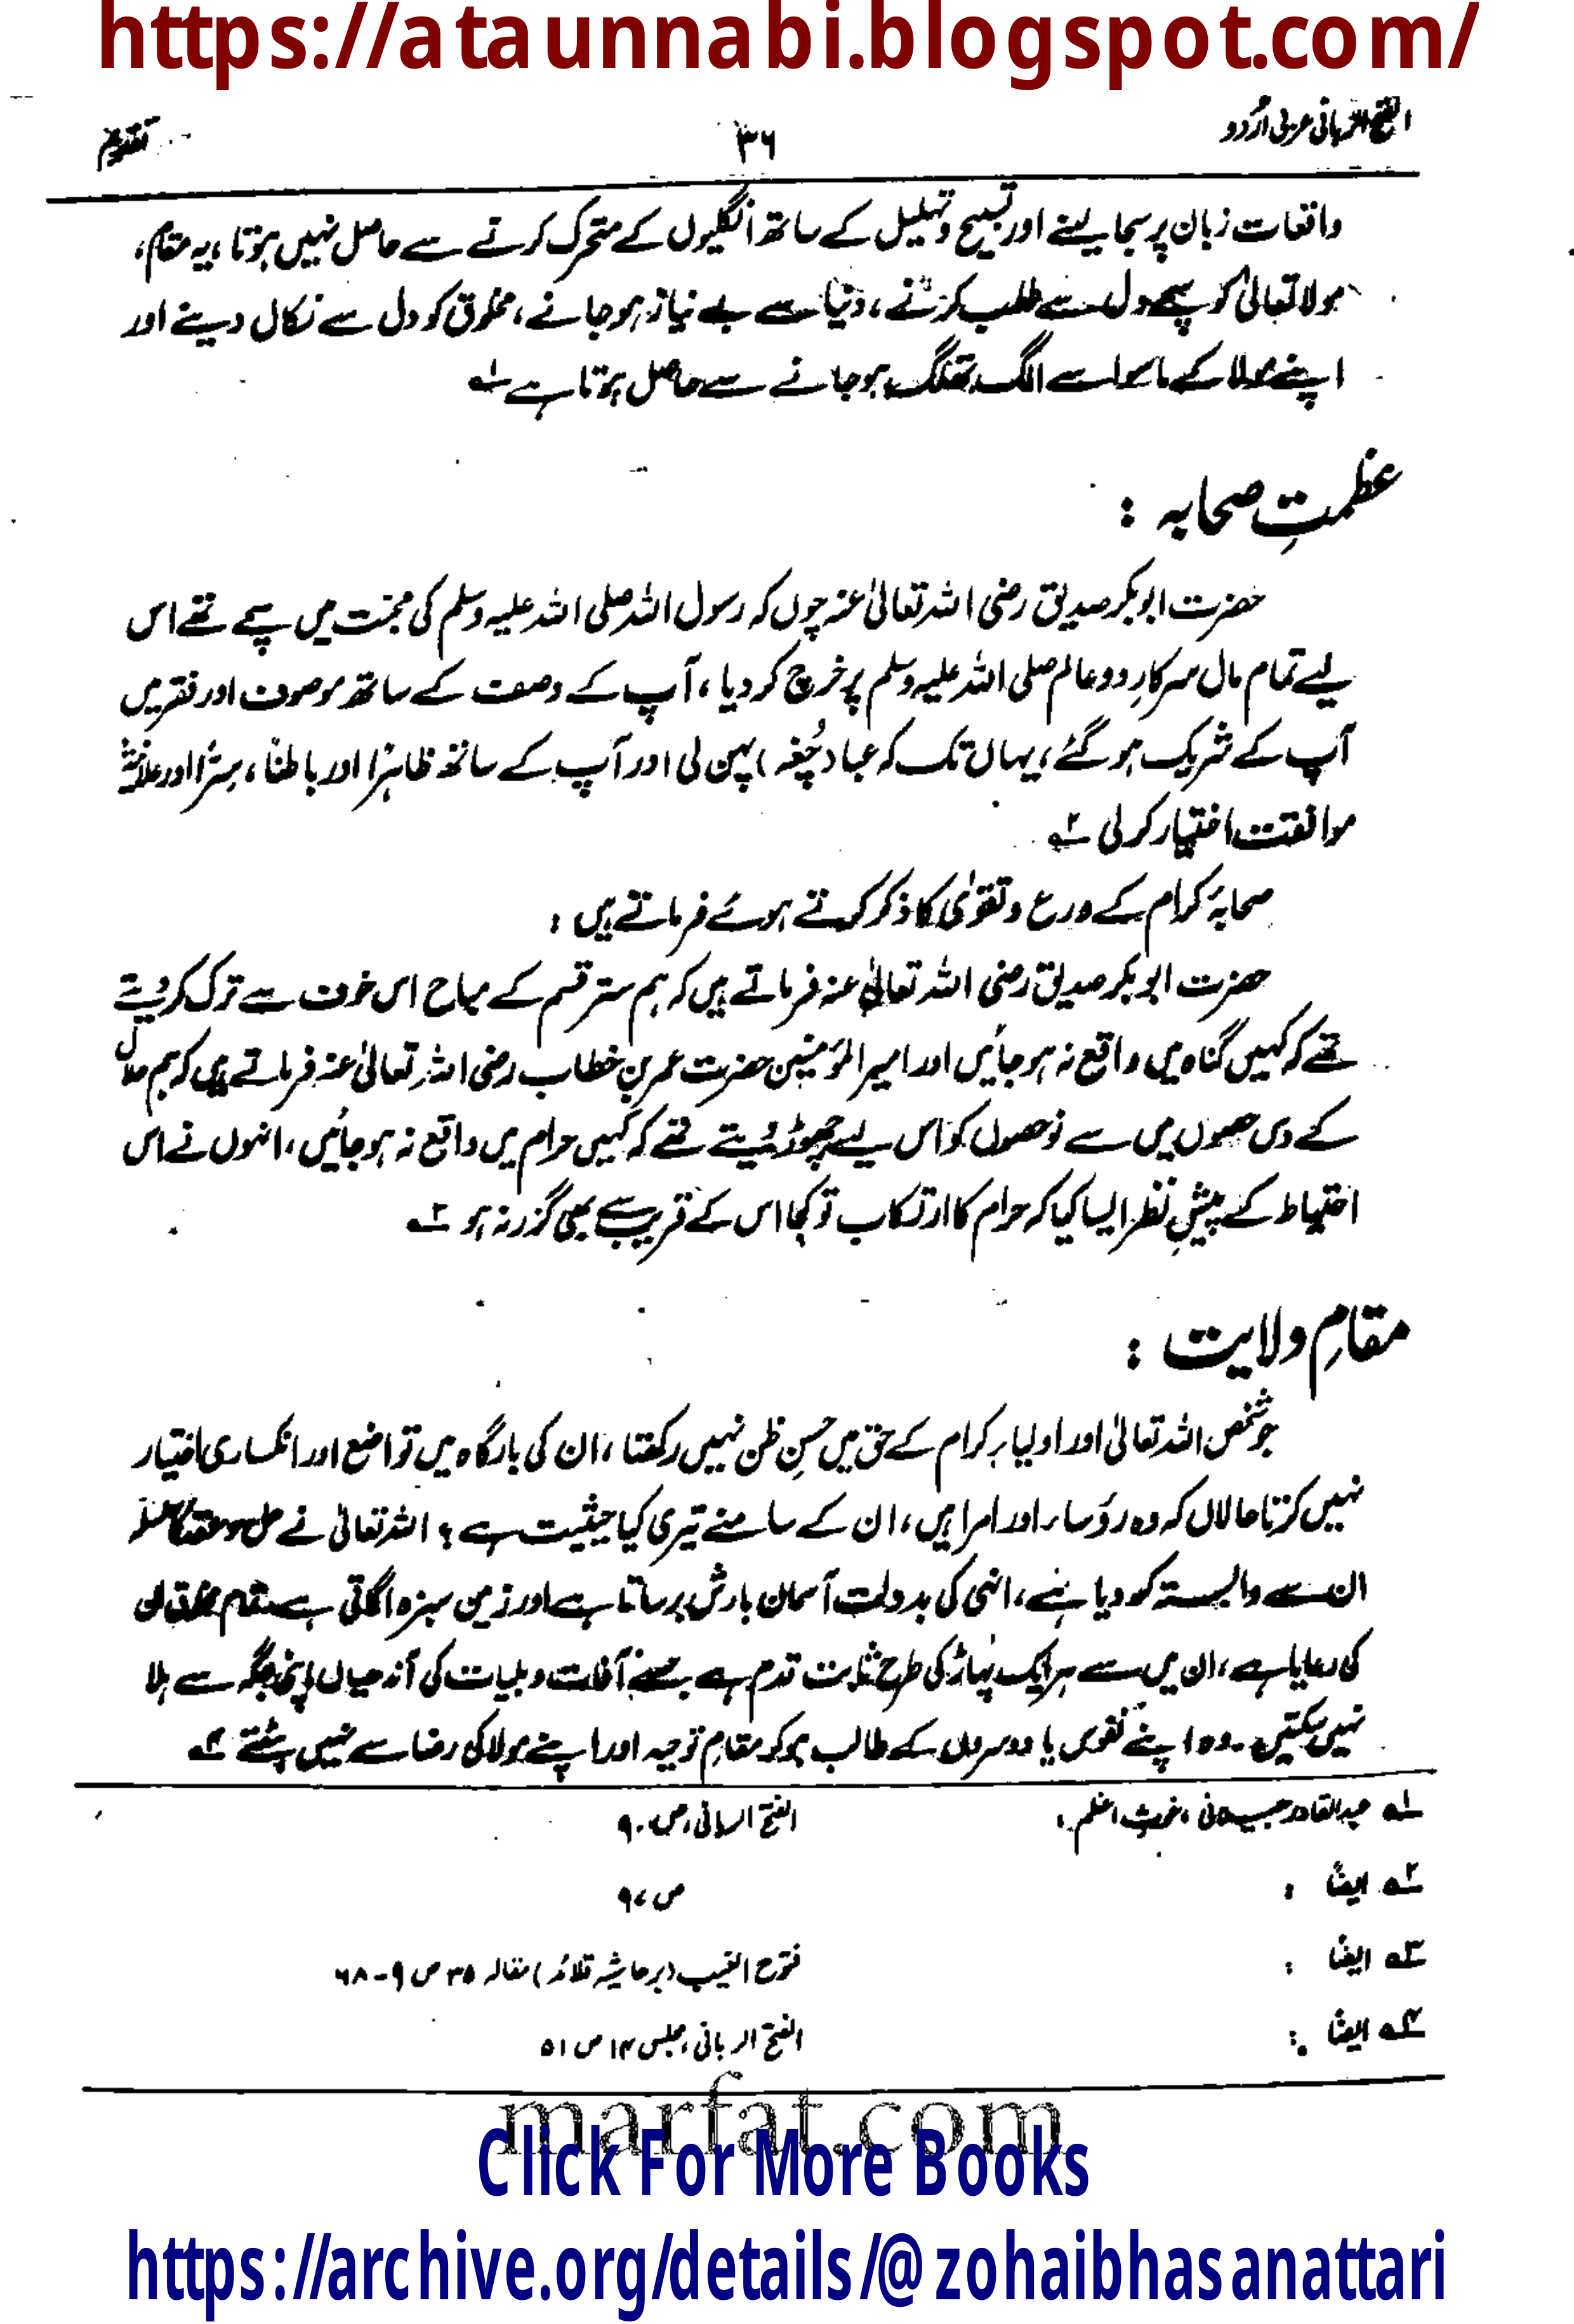 https://ataunnabi.blogspot.com/
الفتح الربانی عربی اردو
۳۶
تقدیم
واقعات زبان پر سجا لینے اور تسبیح و تہلیل کے ساتھ انگلیوں کے متحرک کرنے سے حاصل نہیں ہوتا، یہ مقام،
مولا تعالیٰ کو سچے دل سے طلب کرنے، دنیا سے بے نیاز ہو جانے، مخلوق کو دل سے نکال دینے اور
اپنے مولا کے ماسوا سے الگ تھلگ ہو جانے سے حاصل ہوتا ہے ۱؎
عظمتِ صحابہ :
حضرت ابوبکر صدیق رضی اللہ تعالیٰ عنہ چوں کہ رسول اللہ صلی اللہ علیہ وسلم کی محبت میں سچے تھے اس
لیے تمام مال سرکارِ دو عالم صلی اللہ علیہ وسلم پر خرچ کر دیا، آپ کے وصف کے ساتھ موصوف اور فقر میں
آپ کے شریک ہو گئے، یہاں تک کہ عبا (چُغہ) پہن لی اور آپ کے ساتھ ظاہرًا اور باطنًا، سِرًّا اور علانیۃً
موافقت اختیار کر لی ۲؎
صحابۂ کرام کے ورع و تقویٰ کا ذکر کرتے ہوئے فرماتے ہیں :
حضرت ابوبکر صدیق رضی اللہ تعالیٰ عنہ فرماتے ہیں کہ ہم ستر قسم کے مباح اس خوف سے ترک کر دیتے
تھے کہ کہیں گناہ میں واقع نہ ہو جائیں اور امیر المؤمنین حضرت عمر بن خطاب رضی اللہ تعالیٰ عنہ فرماتے ہیں کہ ہم حلال
کے دس حصوں میں سے نو حصوں کو اس لیے چھوڑ دیتے تھے کہ کہیں حرام میں واقع نہ ہو جائیں، انہوں نے اس
احتیاط کے پیشِ نظر ایسا کیا کہ حرام کا ارتکاب تو کجا اس کے قریب سے بھی گزر نہ ہو ۳؎
مقامِ ولایت :
جو شخص اللہ تعالیٰ اور اولیاء کرام کے حق میں حسنِ ظن نہیں رکھتا، ان کی بارگاہ میں تواضع اور انکساری اختیار
نہیں کرتا حالاں کہ وہ رؤساء اور امرا ہیں، ان کے سامنے تیری کیا حیثیت ہے؟ اللہ تعالیٰ نے حل و عقد کا سلسلہ
ان سے وابستہ کر دیا ہے، انہی کی بدولت آسمان بارش برساتا ہے اور زمین سبزہ اگاتی ہے، تمام مخلوق ان
کی رعایا ہے، ان میں سے ہر ایک پہاڑ کی طرح ثابت قدم ہے جسے آفات و بلیات کی آندھیاں اپنی جگہ سے ہلا
نہیں سکتیں۔ وہ اپنے نفوس یا دوسروں کے طالب ہو کر مقامِ توحید اور اپنے مولا کی رضا سے نہیں ہٹتے ۴؎
۱؎ عبدالقادر جیلانی، غوثِ اعظم، الفتح الربانی، ص ۹۰
۲؎ ایضًا : ص ۹۷
۳؎ ایضًا : فتوح الغیب (بر حاشیہ قلائد) مقالہ ۳۵ ص ۹-۶۸
۴؎ ایضًا : الفتح الربانی، مجلس ۱۴ ص ۵۱
marfat.com
Click For More Books
https://archive.org/details/@zohaibhasanattari